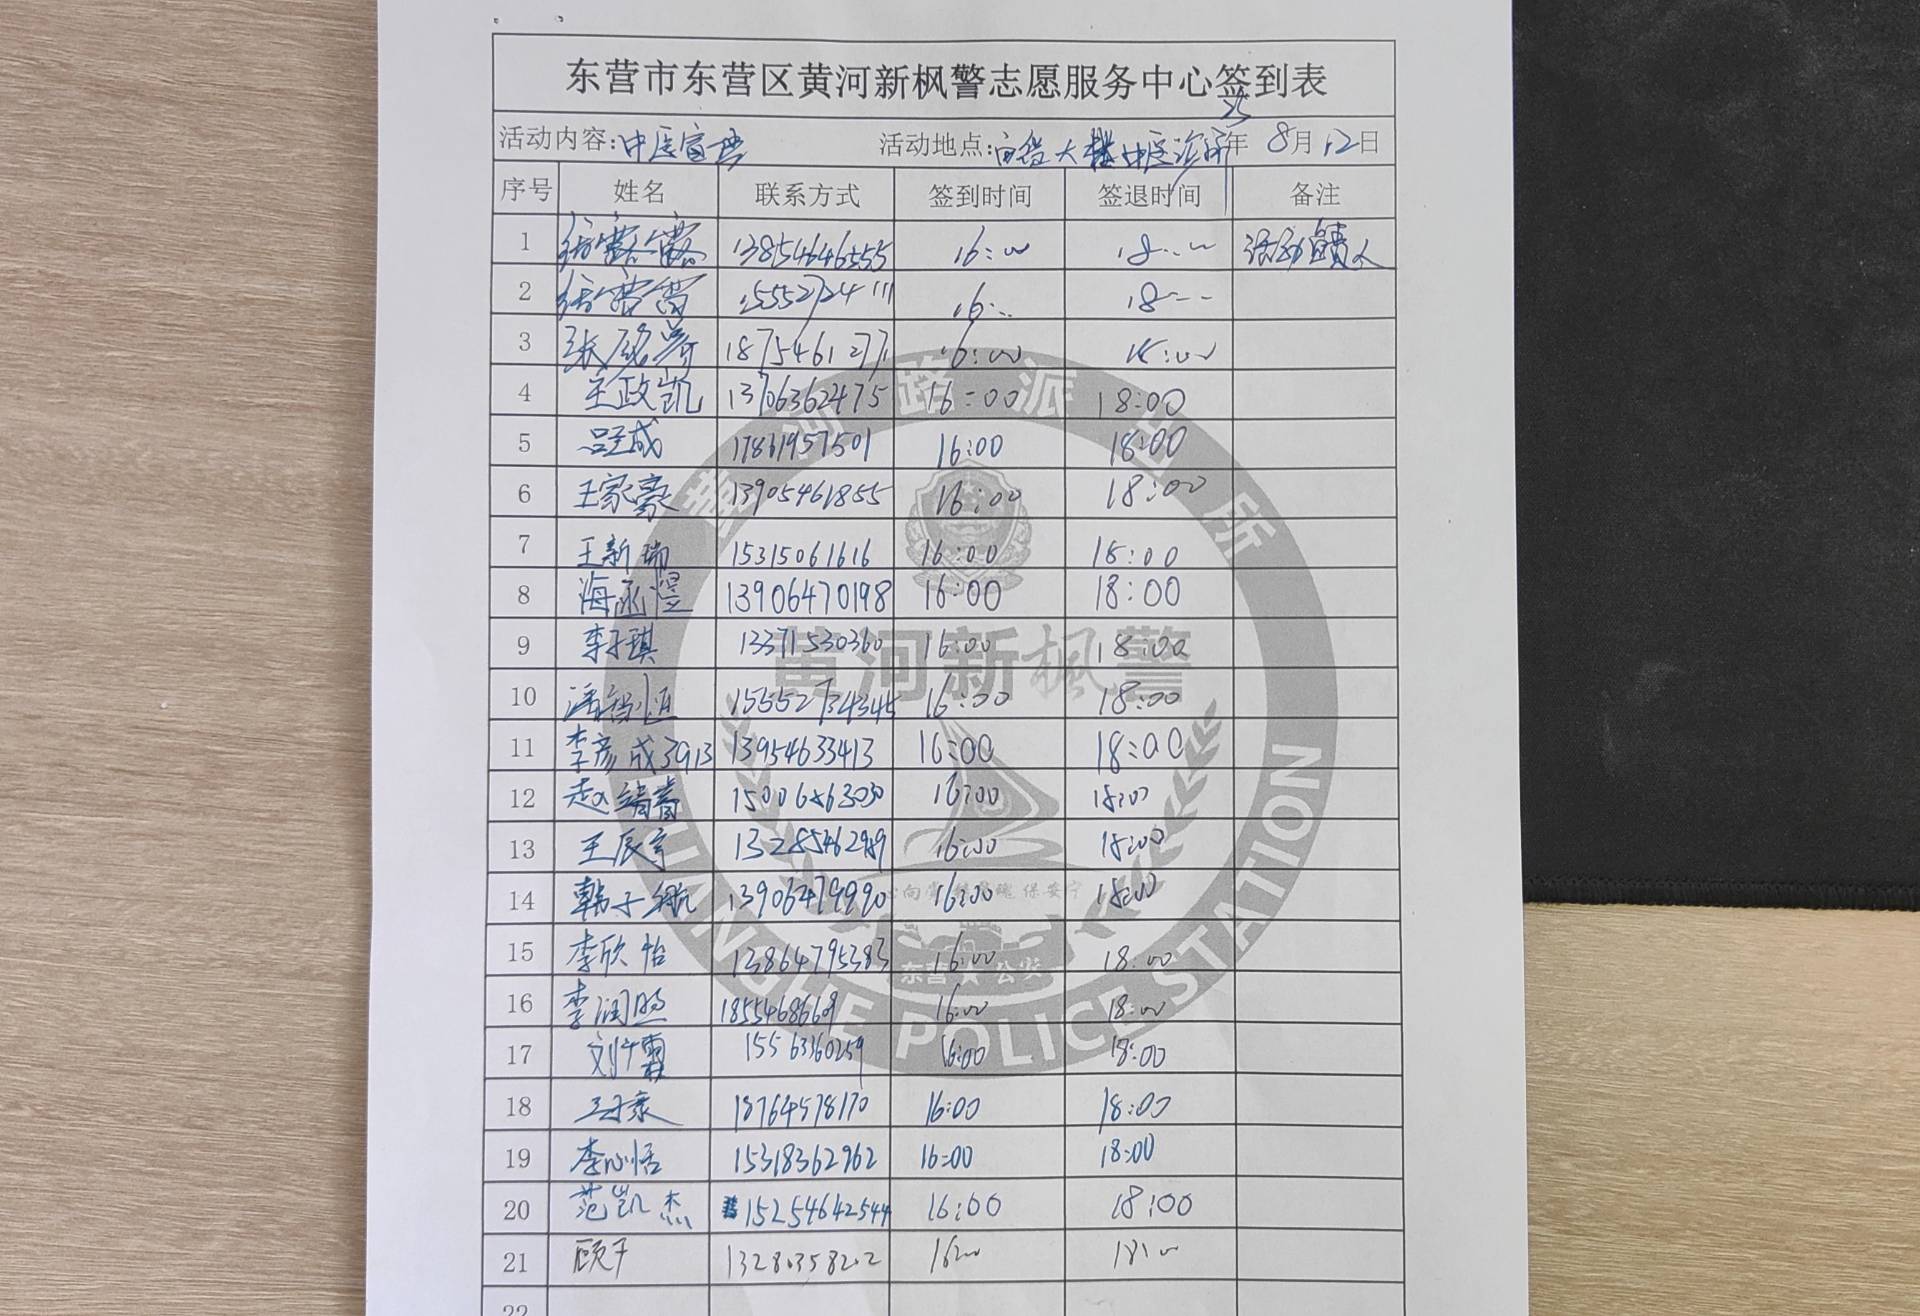 东营市东营区黄河新枫警志愿服务中心签到表
活动内容:中医宣讲 活动地点: 大楼中医诊所 25年 8月12日
序号 姓名 联系方式 签到时间 签退时间 备注
1 张露露 13854646555 16:00 18:00 活动负责人
2 15552724111 16:00 18:00
3 张 18754612771 16:00 18:00
4 王政凯 13706362475 16:00 18:00
5 成 17831957501 16:00 18:00
6 王家豪 13905461855 16:00 18:00
7 王新瑞 15315061616 16:00 18:00
8 海函煜 13906470198 16:00 18:00
9 李子琪 13371530360 16:00 18:00
10 潘 恒 15552734345 16:00 18:00
11 李彦成3913 13954633413 16:00 18:00
12 赵 15006863030 16:00 18:00
13 王辰宇 13285462989 16:00 18:00
14 韩子航 13906479990 16:00 18:00
15 李欣怡 13864795383 16:00 18:00
16 李润 1855468668 16:00 18:00
17 刘 霖 15563360259 16:00 18:00
18 18764578170 16:00 18:00
19 李心悟 15318362962 16:00 18:00
20 范凯杰 15254642544 16:00 18:00
21 顾于 13280358202 16:00 18:00
22
黄河路派出所
黄河新枫警
保安宁
东营★公安
HUANGHE POLICE STATION